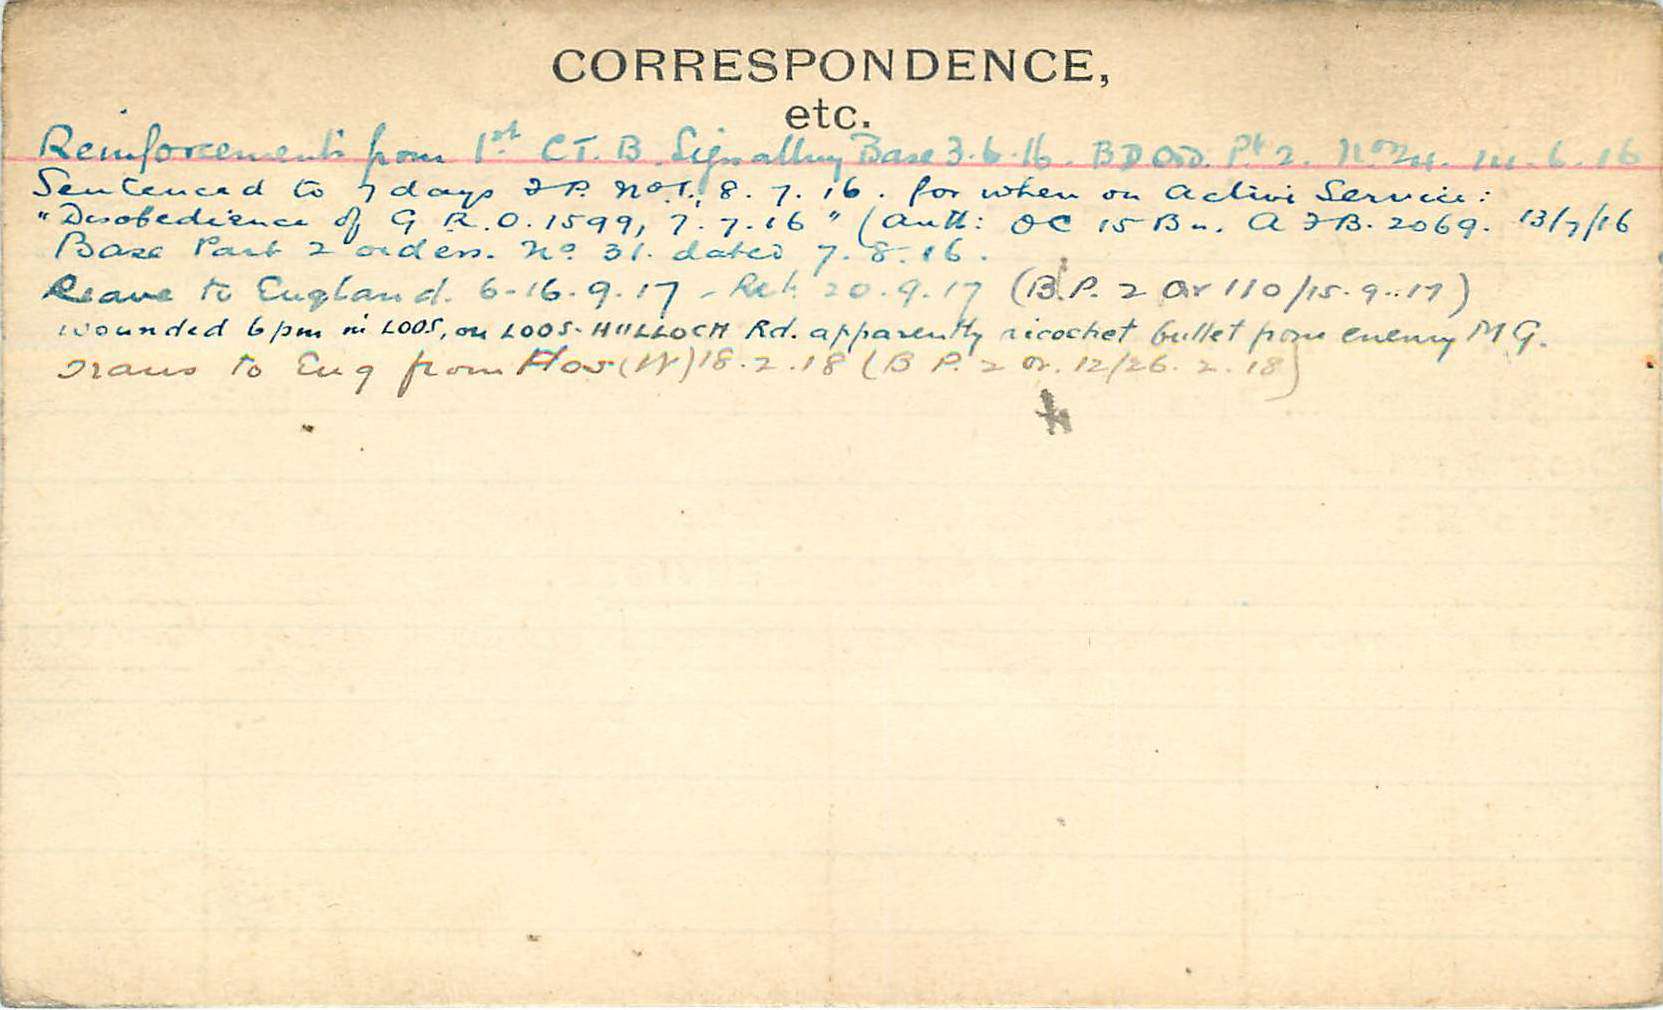 CORRESPONDENCE,
etc.
Reinforcements from 1st C T. B. Signalling Base 3.6.16. B D Ord. Pt 2. No 24. 14.6.16
Sentenced to 7 days F P. No 1., 8.7.16. for when on Active Service:
"Disobedience of G R.O. 1599, 7.7.16" (Auth: OC 15 Bn. A F B. 2069. 13/7/16
Base Part 2 orders. No 31. dated 7.8.16.
Leave to England. 6-16.9.17 - Ret. 20.9.17 (B.P. 2 Or 110/15.9.17)
Wounded 6 pm in LOOS, on LOOS-HULLOCH Rd. apparently ricochet bullet from enemy M G.
Trans to Eng from Hos (W) 18.2.18 (B P. 2 Or. 12/26.2.18)